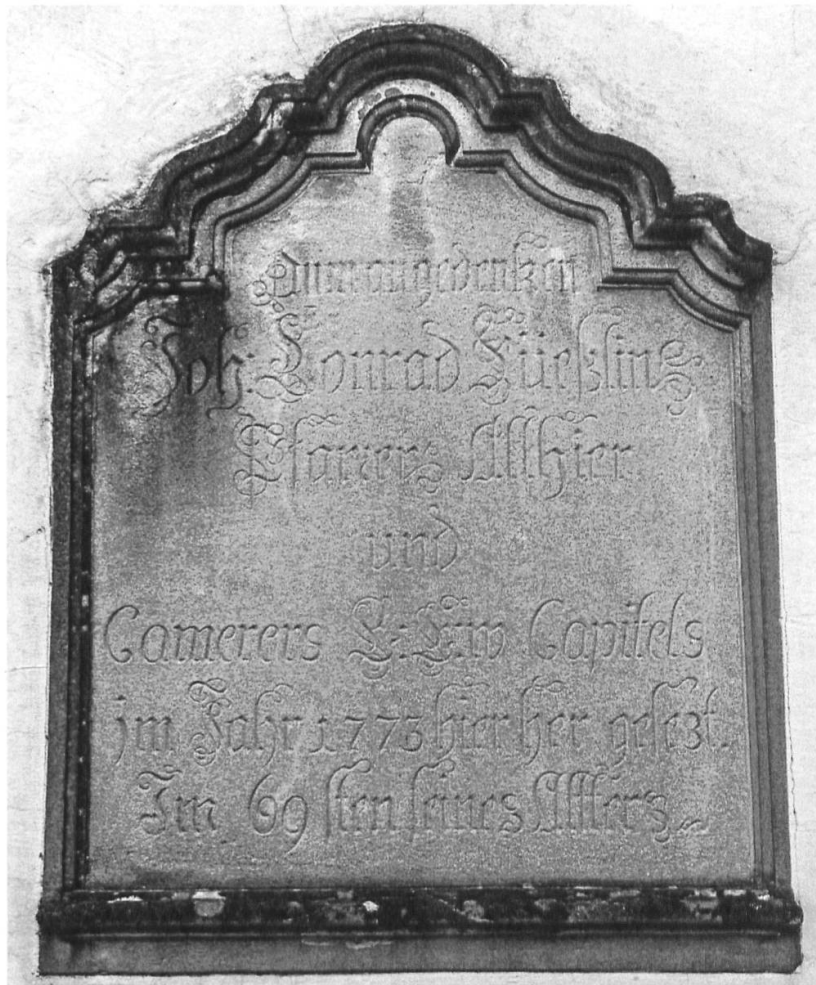 Zum angedenken
Joh: Conrad Füeßlins
Pfarrers Allhier
und
Camerers E: E: w Capitels
jm Jahr 1773 hier her gesezt.
Im 69 sten seines Allters